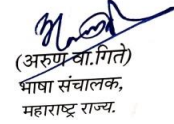 (अरुण वा.गिते)
भाषा संचालक,
महाराष्ट्र राज्य.